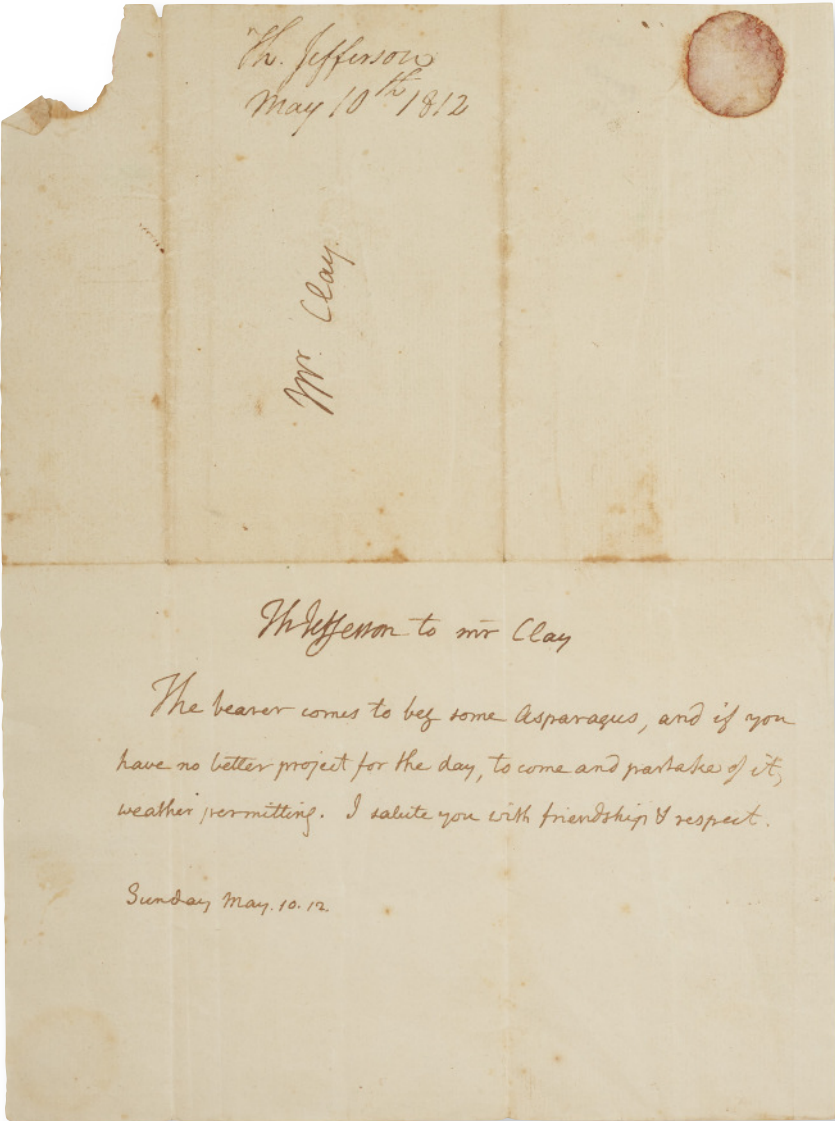 Th. Jefferson
May 10th 1812
Mr. Clay.
Th Jefferson to mr Clay
The bearer comes to beg some Asparagus, and if you
have no better project for the day, to come and partake of it,
weather permitting. I salute you with friendship & respect.
Sunday May. 10. 12.